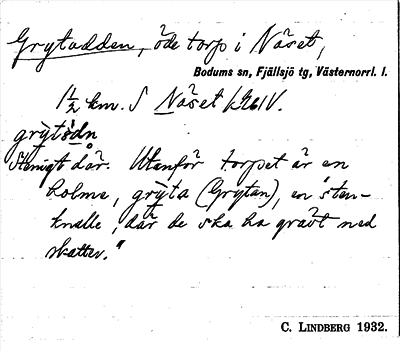 Grytudden, öde torp i Näset,
Bodums sn, Fjällsjö tg, Västernorrl. l.
1 1/2 km. S Näset
Stenigt där. Utanför torpet är en
holme, grỳta (Grytan), en "sten-
knalle, där de ska ha grävt ned
skatter."
C. LINDBERG 1932.